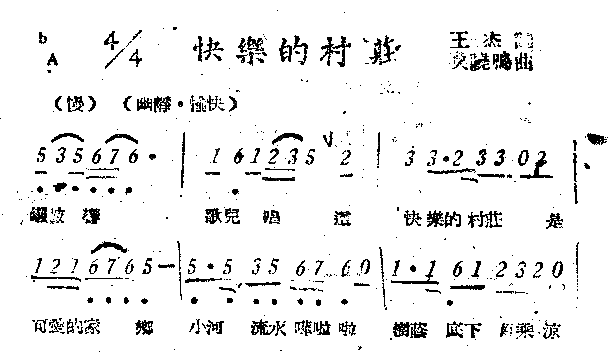 bA 4/4 快樂的村莊 王杰
曲
（慢）（幽靜·愉快）
5 3 5 6 7 6 · | 1 6 1 2 3 5 ∨ 2 | 3 3 · 2 3 3 0 2
歌兒唱 這 快樂的村莊 是
1 2 1 6 7 6 5 — | 5 · 5 3 5 6 7 6 0 | 1 · 1 6 1 2 3 2 0
可愛的家 鄉 小河 流水 嘩啦 啦 樹蔭 底下 涼